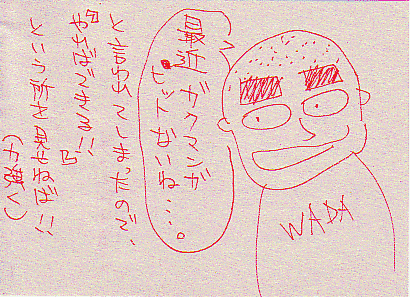 最近ガクマンガ
ヒットないね・・・。
と言われてしまったので、
『やればできる!!』
という所を見せねば!!
(力強く)
WADA